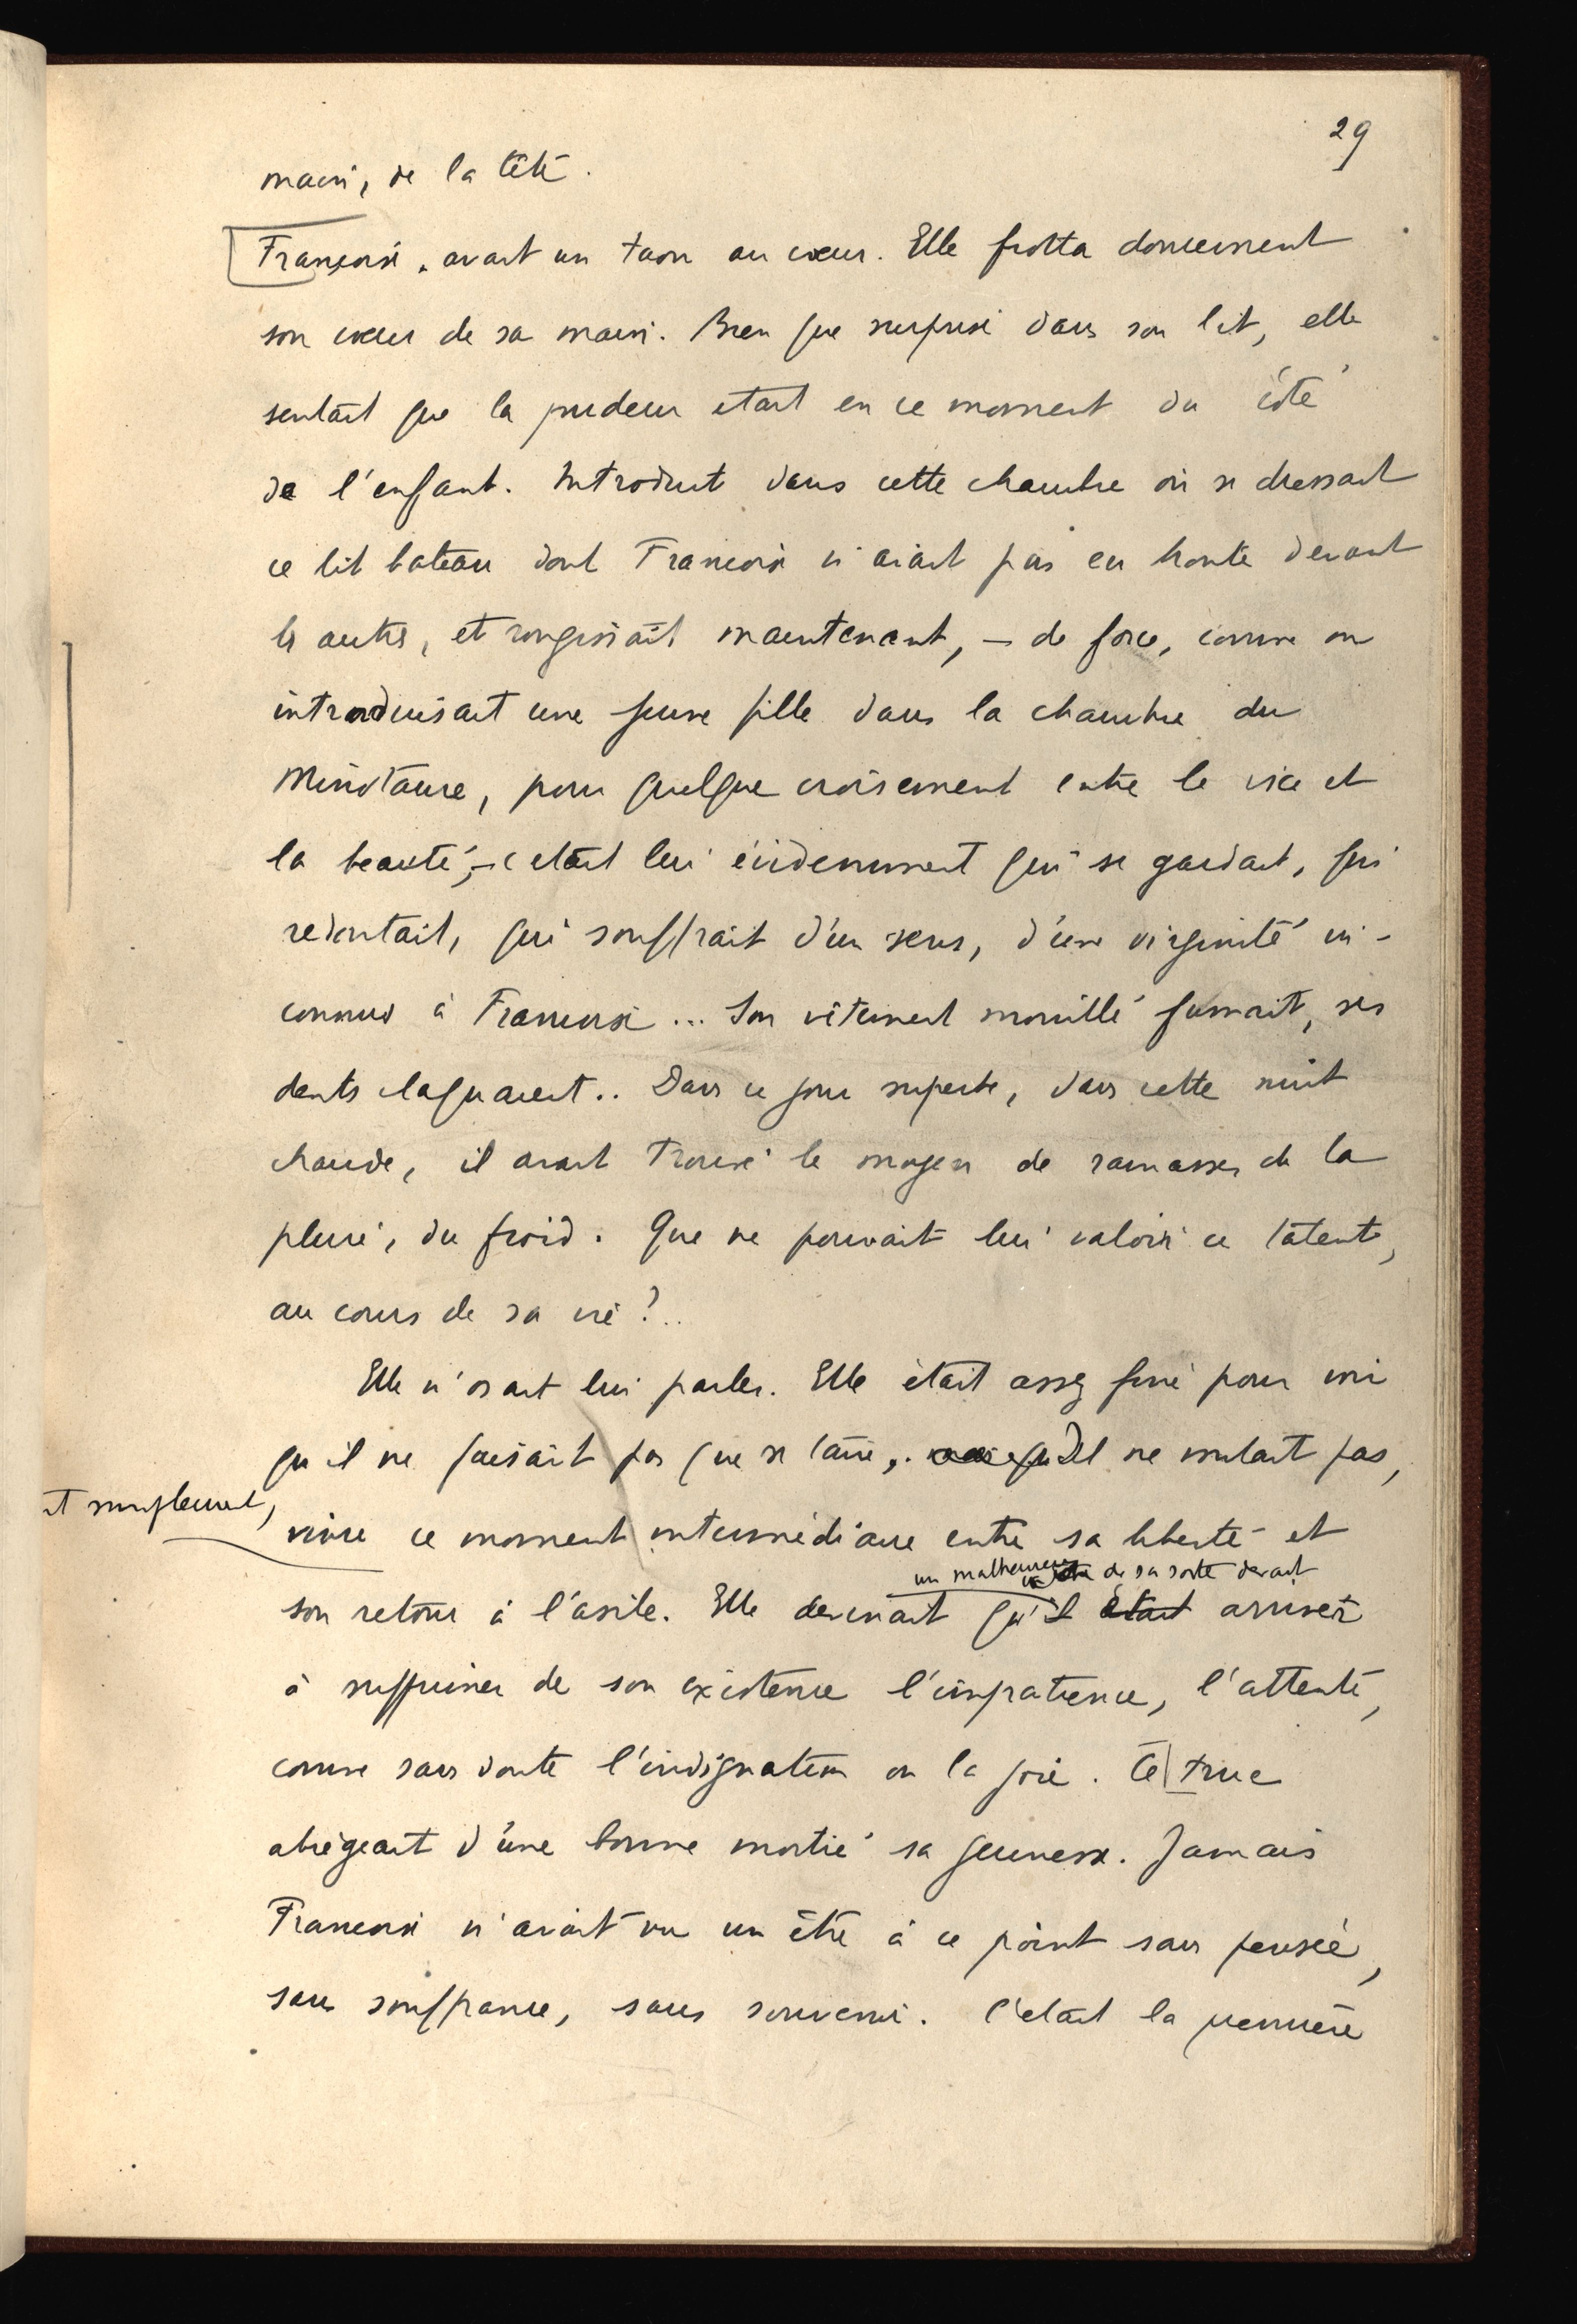 29
main, de la tête.
Françoise avait un taon au cœur. Elle frotta doucement
son cœur de sa main. Bien que surprise dans son lit, elle
sentait que la pudeur était en ce moment du côté
de l'enfant. Introduit dans cette chambre où se dressait
ce lit bateau dont Françoise n'avait pas eu honte devant
les autres, et rougissait maintenant, – de force, comme on
introduisait une jeune fille dans la chambre du
Minotaure, pour quelque croisement entre le vice et
la beauté, – c'était lui évidemment qui se gardait, qui
redoutait, qui souffrait d'un sens, d'une virginité in-
connus à Françoise... Son vêtement mouillé fumait, ses
dents claquaient.. Dans ce jour superbe, dans cette nuit
chaude, il avait trouvé le moyen de ramasser de la
pluie, du froid. Que ne pouvait lui valoir ce talent,
au cours de sa vie ?..
Elle n'osait lui parler. Elle était assez fine pour voir
qu'il ne faisait pas que se taire, Il ne voulait pas,
et simplement,
vivre ce moment intermédiaire entre sa liberté et
un malheureux de sa sorte devait
son retour à l'asile. Elle devinait qu'il était arriver
à supprimer de son existence l'impatience, l'attente,
comme sans doute l'indignation ou la joie. Ce truc
abrégeait d'une bonne moitié sa jeunesse. Jamais
Françoise n'avait vu un être à ce point sans pensée,
sans souffrance, sans souvenir. C'était la première